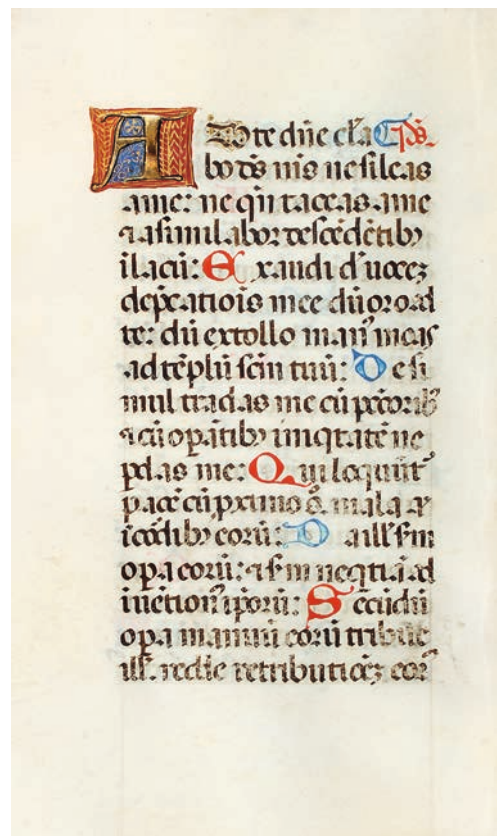 AD te dn̄e cla Ps̄
bo ds̄ ms̄ ne sileas
a me: ne qn̄ taceas a me
⁊ asimilabor descēdētibꝰ
ī lacū: Exaudi dn̄ uocez
dep̄catiōis mee dū oro ad
te: dū extollo manꝰ meas
ad tēplū scm̄ tuū: Ne si
mul tradas me cū pctoribꝰ
⁊ cū oꝑātibꝰ iniqtatē ne
ꝑdas me: Qui loqūnt᷑
pacē cū pximo s̄ mala a᷑
ī cōdibꝰ eorū: Da ill̄ s̄m
oꝑa eorū: ⁊ s̄m neqtiā ad
iuētionū ipōrū: Secūdū
oꝑa manuū eorū tribue
ill̄. redde retributiōez eoꝝ